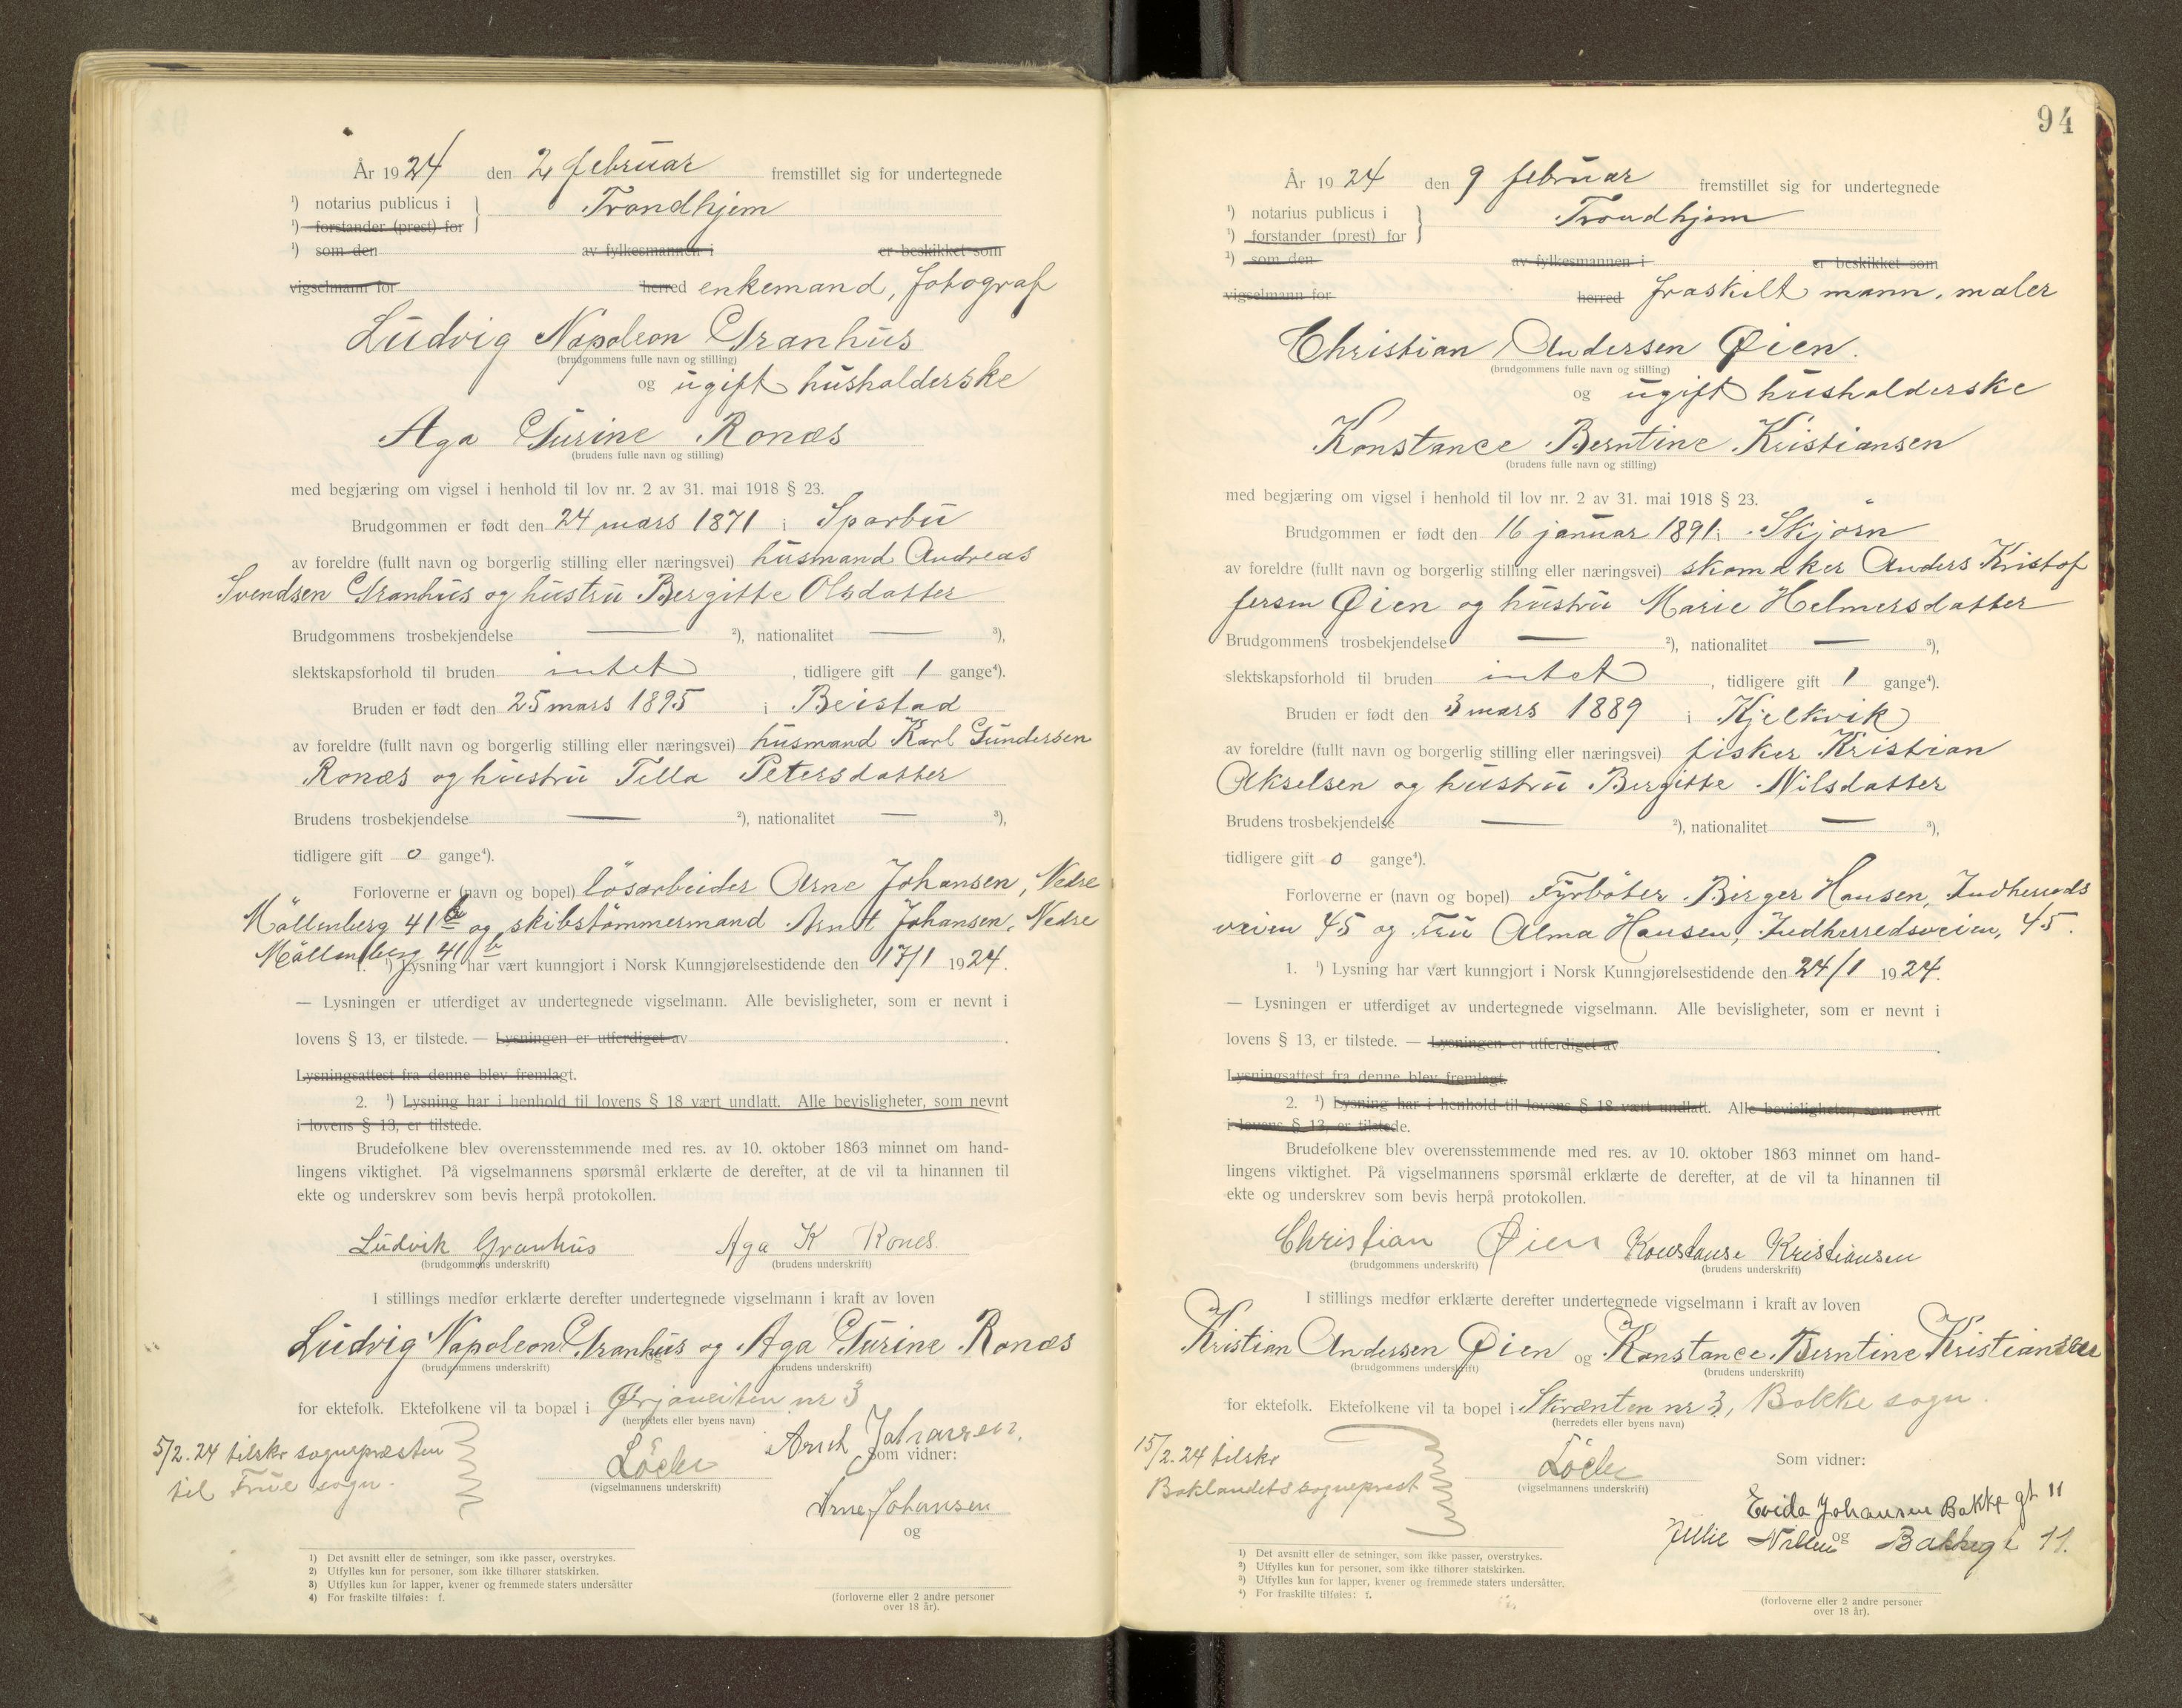 År 1924 den 2 februar fremstillet sig for undertegnede
¹) notarius publicus i } Trondhjem
¹) forstander (prest) for
¹) som den av fylkesmannen i er beskikket som
vigselmann for herred enkemand, fotograf
Ludvig Napoleon Granhus
(brudgommens fulle navn og stilling)
og ugift husholderske
Aga Gurine Ronæs
(brudens fulle navn og stilling)
med begjæring om vigsel i henhold til lov nr. 2 av 31. mai 1918 § 23.
Brudgommen er født den 24 mars 1871 i Sparbu
av foreldre (fullt navn og borgerlig stilling eller næringsvei) husmand Andreas
Svendsen Granhus og hustru Bergitte Olsdatter
Brudgommens trosbekjendelse — ²), nationalitet — ³),
slektskapsforhold til bruden intet , tidligere gift 1 gange⁴).
Bruden er født den 25 mars 1895 i Beistad
av foreldre (fullt navn og borgerlig stilling eller næringsvei) husmand Karl Gundersen
Ronæs og hustru Tella Petersdatter
Brudens trosbekjendelse — ²), nationalitet — ³),
tidligere gift 0 gange⁴).
Forloverne er (navn og bopel) lösarbeider Arne Johansen, Nedre
Möllenberg 41 b og skibstömmermand Arnt Johansen, Nedre
Möllenberg 41 b
1. ¹) Lysning har vært kunngjort i Norsk Kunngjørelsestidende den 17/1 1924.
— Lysningen er utferdiget av undertegnede vigselmann. Alle bevisligheter, som er nevnt i
lovens § 13, er tilstede. — Lysningen er utferdiget av .
Lysningsattest fra denne blev fremlagt.
2. ¹) Lysning har i henhold til lovens § 18 vært undlatt. Alle bevisligheter, som nevnt
i lovens § 13, er tilstede.
Brudefolkene blev overensstemmende med res. av 10. oktober 1863 minnet om hand-
lingens viktighet. På vigselmannens spørsmål erklærte de derefter, at de vil ta hinannen til
ekte og underskrev som bevis herpå protokollen.
Ludvik Granhus Aga K Rones.
(brudgommens underskrift) (brudens underskrift)
I stillings medfør erklærte derefter undertegnede vigselmann i kraft av loven
Ludvig Napoleon Granhus og Aga Gurine Ronæs
(brudgommens underskrift) (brudens underskrift)
for ektefolk. Ektefolkene vil ta bopæl i Ørjaveiten nr 3
(herredets eller byens navn)
Arnt Johansen.
5/2.24 tilskr sognepræsten
Som vidner:
til Frue sogn.
Löchen
(vigselmannens underskrift)
Arne Johansen
og
1) Det avsnitt eller de setninger, som ikke passer, overstrykes.
2) Utfylles kun for personer, som ikke tilhører statskirken.
3) Utfylles kun for lapper, kvener og fremmede staters undersåtter
4) For fraskilte tilføies: f.
(forloverne eller 2 andre personer
over 18 år).
94
År 1924 den 9 februar fremstillet sig for undertegnede
¹) notarius publicus i } Trondhjem
¹) forstander (prest) for
¹) som den av fylkesmannen i er beskikket som
vigselmann for herred fraskilt mann, maler
Christian Andersen Øien.
(brudgommens fulle navn og stilling)
og ugift husholderske
Konstance Berntine Kristiansen
(brudens fulle navn og stilling)
med begjæring om vigsel i henhold til lov nr. 2 av 31. mai 1918 § 23.
Brudgommen er født den 16 januar 1891 i Skjörn
av foreldre (fullt navn og borgerlig stilling eller næringsvei) skomaker Anders Kristof
fersen Øien og hustru Marie Helmersdatter
Brudgommens trosbekjendelse — ²), nationalitet — ³),
slektskapsforhold til bruden intet , tidligere gift 1 gange⁴).
Bruden er født den 3 mars 1889 i Kjelkvik
av foreldre (fullt navn og borgerlig stilling eller næringsvei) fisker Kristian
Akselsen og hustru Bergitte Nilsdatter
Brudens trosbekjendelse — ²), nationalitet — ³),
tidligere gift 0 gange⁴).
Forloverne er (navn og bopel) Fyrböter Birger Hansen, Indherreds
veien 45 og Fru Alma Hansen, Indherredsveien, 45.
1. ¹) Lysning har vært kunngjort i Norsk Kunngjørelsestidende den 24/1 1924.
— Lysningen er utferdiget av undertegnede vigselmann. Alle bevisligheter, som er nevnt i
lovens § 13, er tilstede. — Lysningen er utferdiget av .
Lysningsattest fra denne blev fremlagt.
2. ¹) Lysning har i henhold til lovens § 18 vært undlatt. Alle bevisligheter, som nevnt
i lovens § 13, er tilstede.
Brudefolkene blev overensstemmende med res. av 10. oktober 1863 minnet om hand-
lingens viktighet. På vigselmannens spørsmål erklærte de derefter, at de vil ta hinannen til
ekte og underskrev som bevis herpå protokollen.
Christian Øien Konstanse Kristiansen
(brudgommens underskrift) (brudens underskrift)
I stillings medfør erklærte derefter undertegnede vigselmann i kraft av loven
Kristian Andersen Øien og Konstance Berntine Kristiansen
(brudgommens underskrift) (brudens underskrift)
for ektefolk. Ektefolkene vil ta bopel i Skrænten nr 3, Bakke sogn.
(herredets eller byens navn)
15/2.24 tilskr
Som vidner:
Baklandets sogneprest
Löchen
(vigselmannens underskrift)
Evida Johansen Bakke gt 11
Jullie Nilsen og Bakkegt 11.
1) Det avsnitt eller de setninger, som ikke passer, overstrykes.
2) Utfylles kun for personer, som ikke tilhører statskirken.
3) Utfylles kun for lapper, kvener og fremmede staters undersåtter.
4) For fraskilte tilføies: f.
(forloverne eller 2 andre personer
over 18 år).